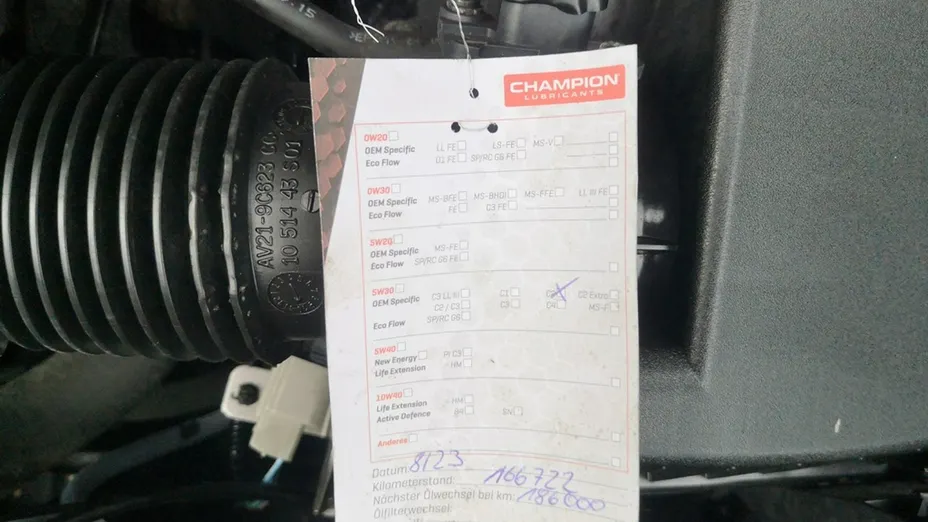 CHAMPION
LUBRICANTS
0W20
OEM Specific LL FE LS-FE MS-V
Eco Flow D1 FE SP/RC G6 FE
0W30
OEM Specific MS-BFE MS-BHDI MS-FFE LL III FE
Eco Flow FE C3 FE
5W20
OEM Specific MS-FE
Eco Flow SP/RC G6 FE
5W30
OEM Specific C3 LL III C1 C2 Extra
C2 / C3 C3 C4 MS-F
Eco Flow SP/RC G6
5W40
New Energy PI C3
Life Extension HM
10W40
Life Extension HM
Active Defence SN
Anderes
Datum 8/23
Kilometerstand: 166722
Nächster Ölwechsel bei km: 186000
Ölfilterwechsel:
AV21-9C623
10 514 43 S01
.15